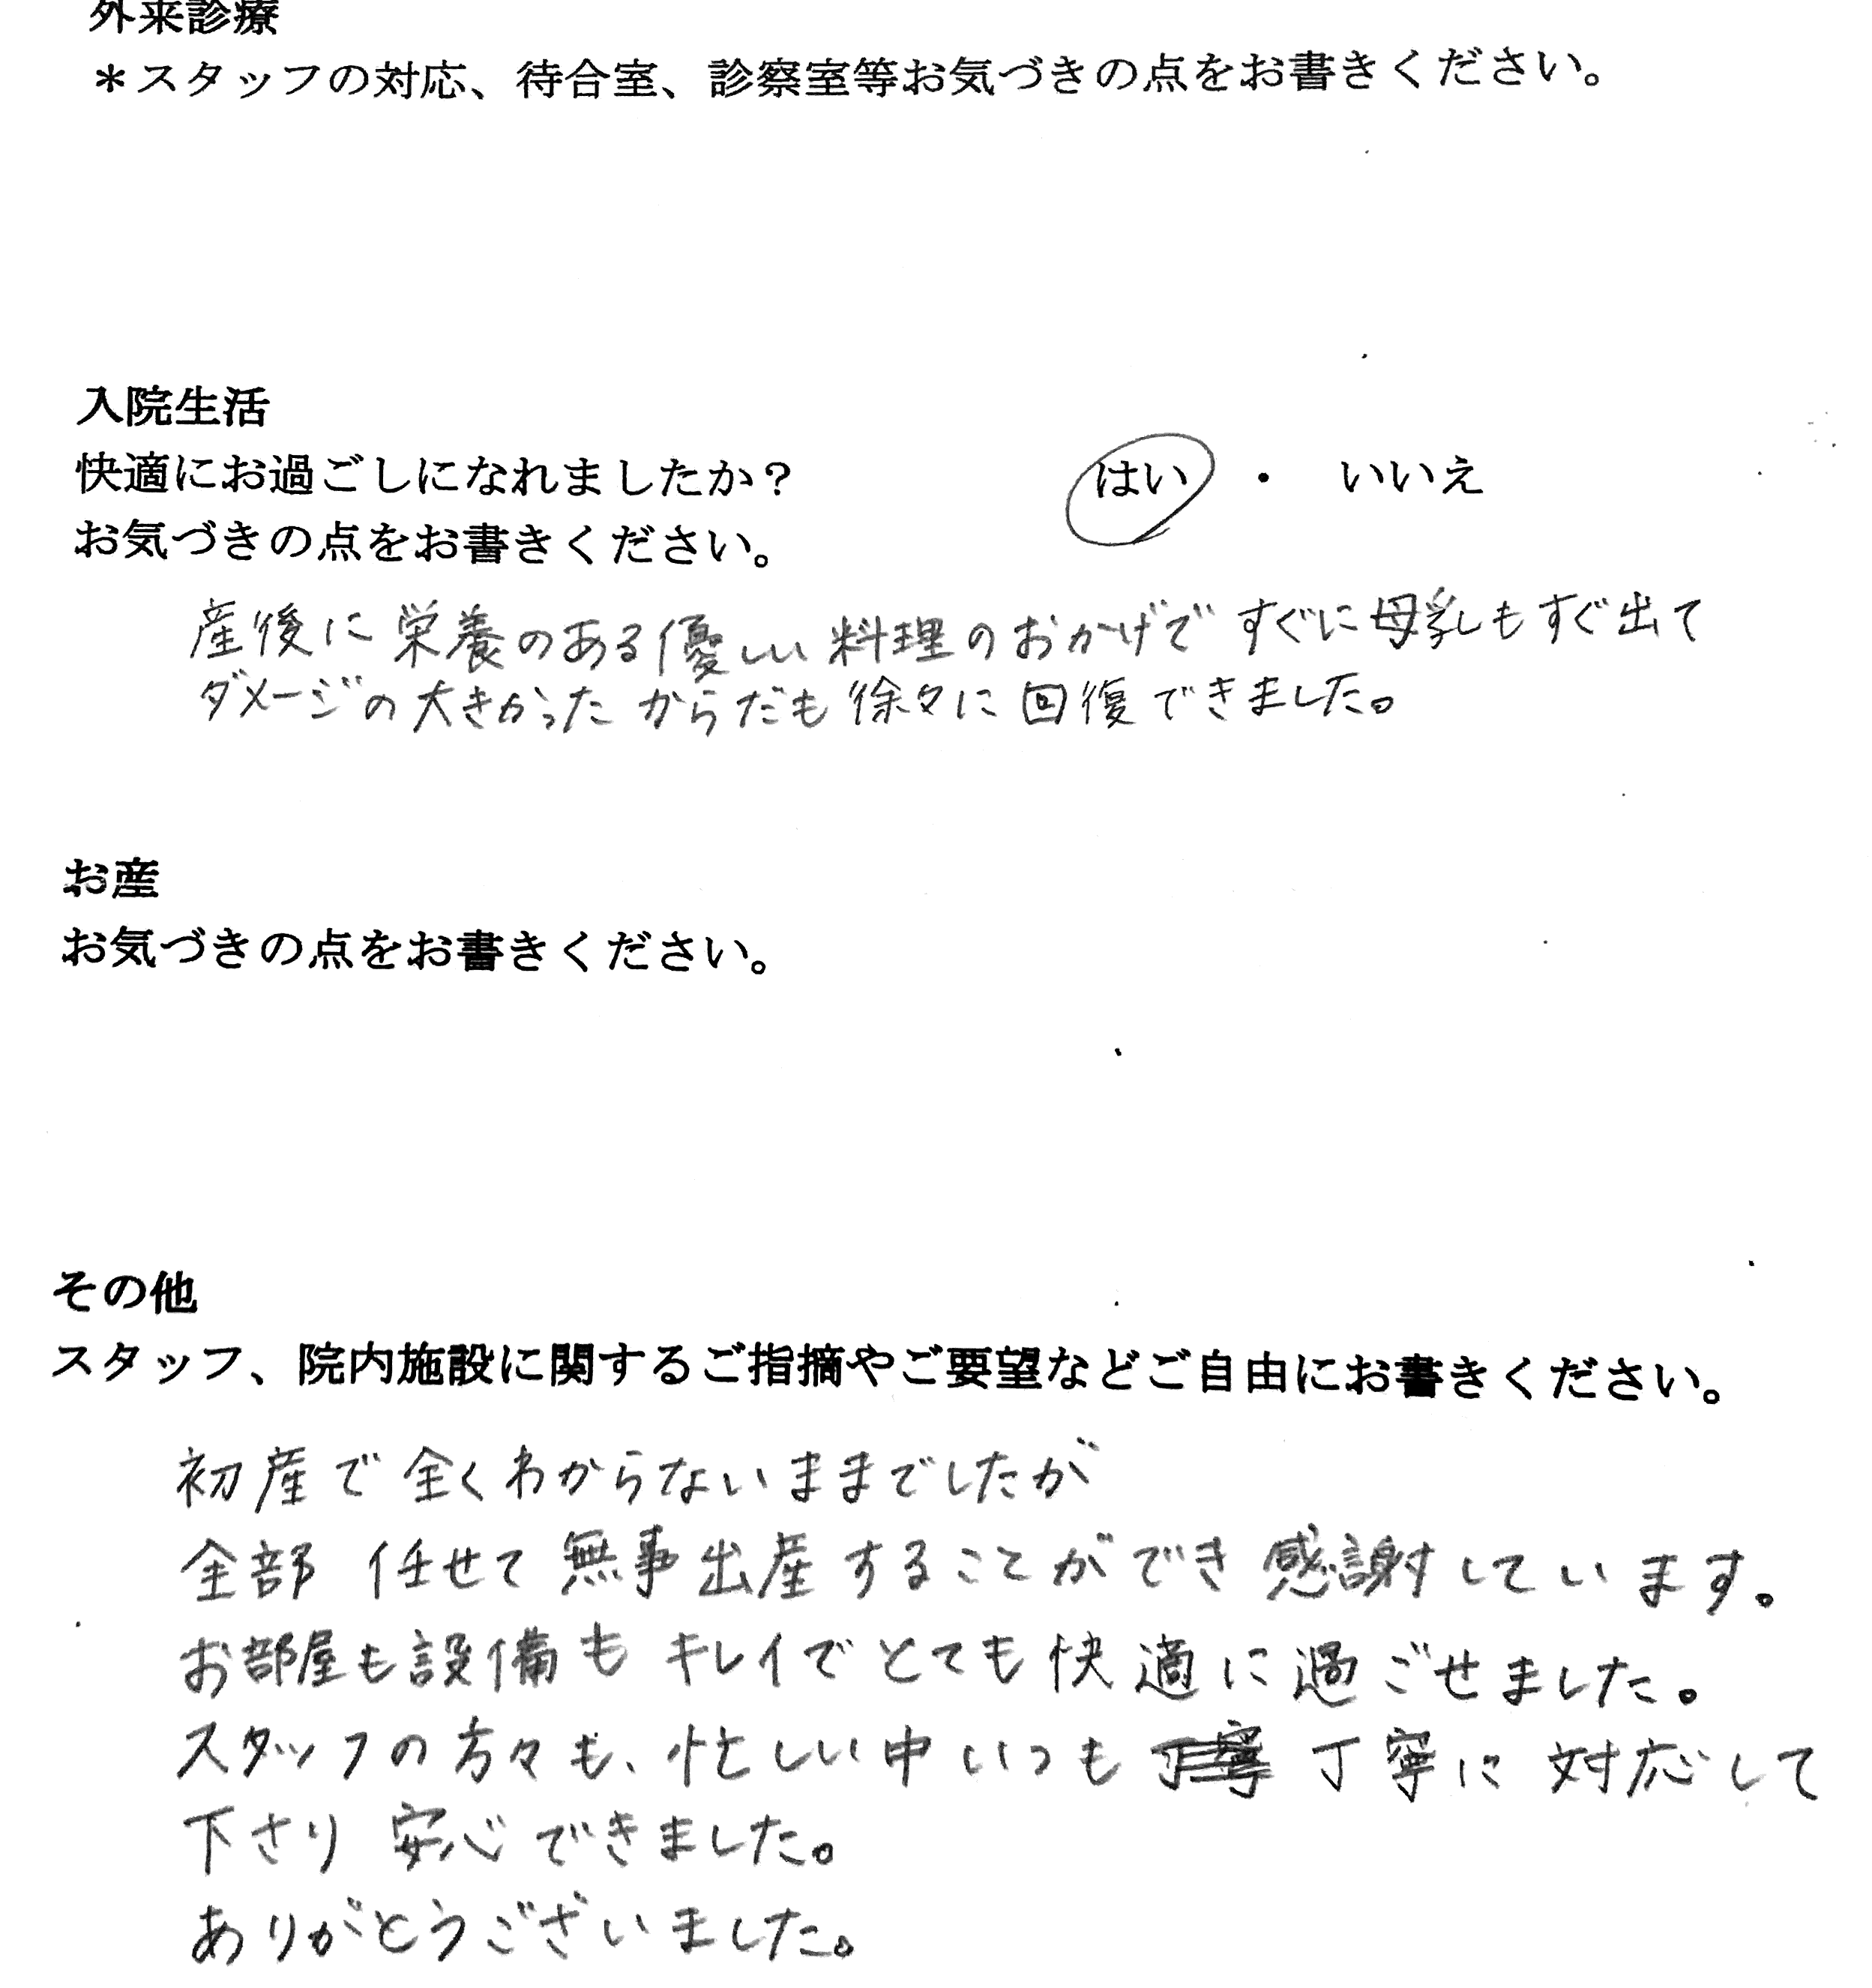 外来診療
＊スタッフの対応、待合室、診察室等お気づきの点をお書きください。
入院生活
快適にお過ごしになれましたか？ はい ・ いいえ
お気づきの点をお書きください。
産後に栄養のある優しい料理のおかげですぐに母乳もすぐ出て
ダメージの大きかったからだも徐々に回復できました。
お産
お気づきの点をお書きください。
その他
スタッフ、院内施設に関するご指摘やご要望などご自由にお書きください。
初産で全くわからないままでしたが
全部任せて無事出産することができ感謝しています。
お部屋も設備もキレイでとても快適に過ごせました。
スタッフの方々も、忙しい中いつも丁寧に対応して
下さり安心できました。
ありがとうございました。